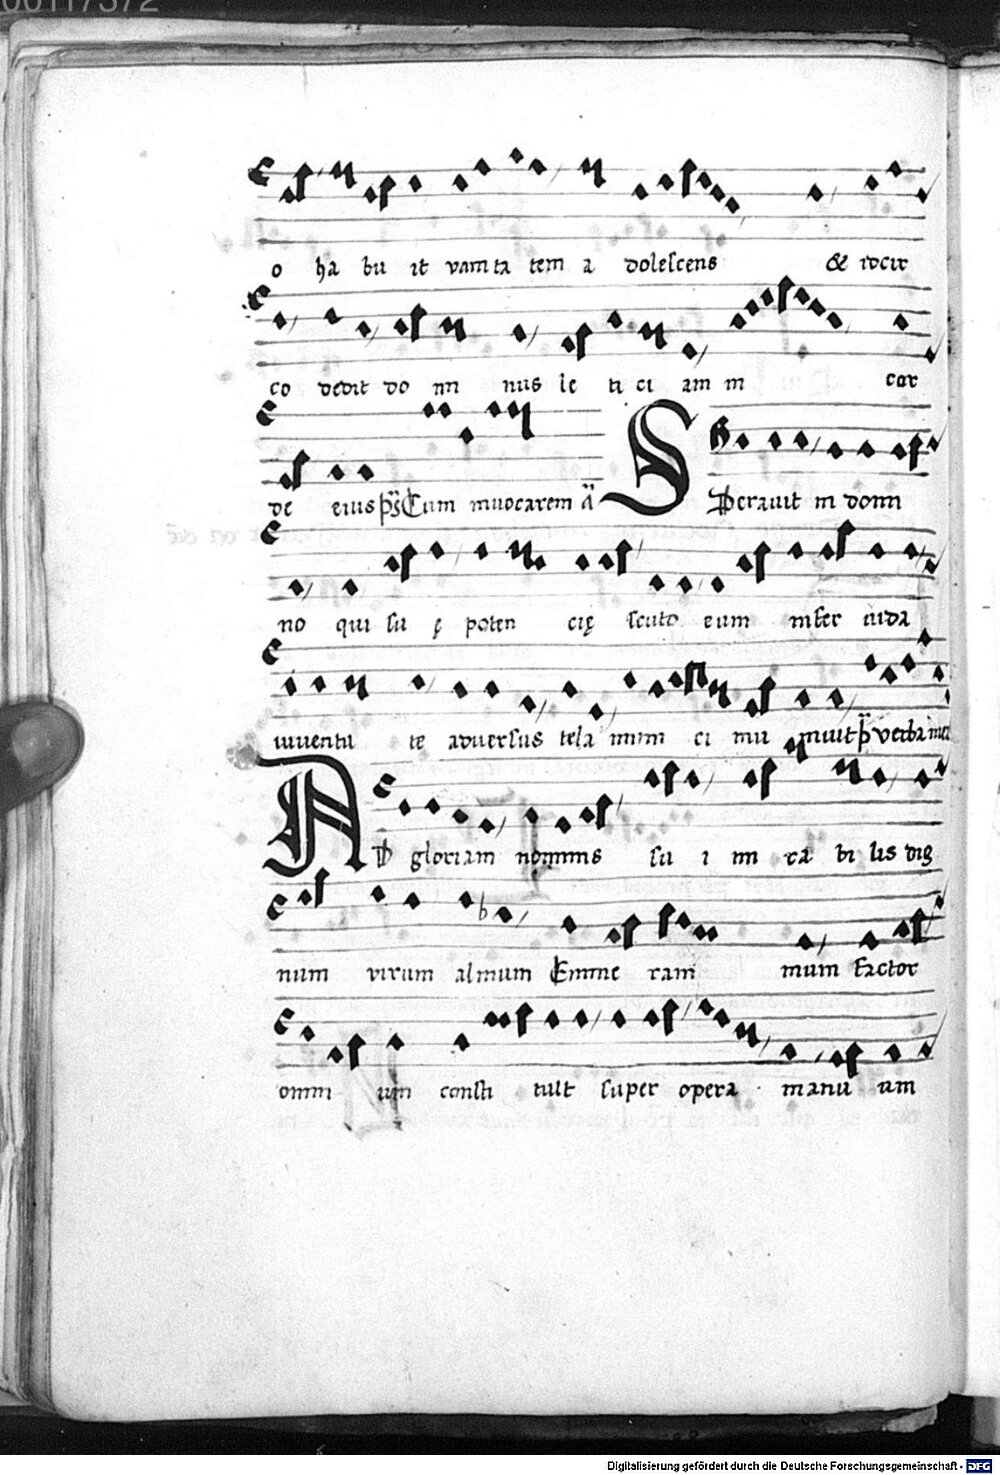 00117372
o ha bu it vanita tem a dolescens & iocir
co dedit do mi nus le ti ci am in cor
de eius ps Cum invocarem A
Speravit in domi
no qui su ę poten cię scuto eum inser
iuventu te adversus tela inimi ci mu nivit ps verba mea
AD gloriam nominis su i mi ra bi lis dig
num virum almum Emme ram mum factor
omni um consti tuit super opera manu um
Digitalisierung gefördert durch die Deutsche Forschungsgemeinschaft - DFG